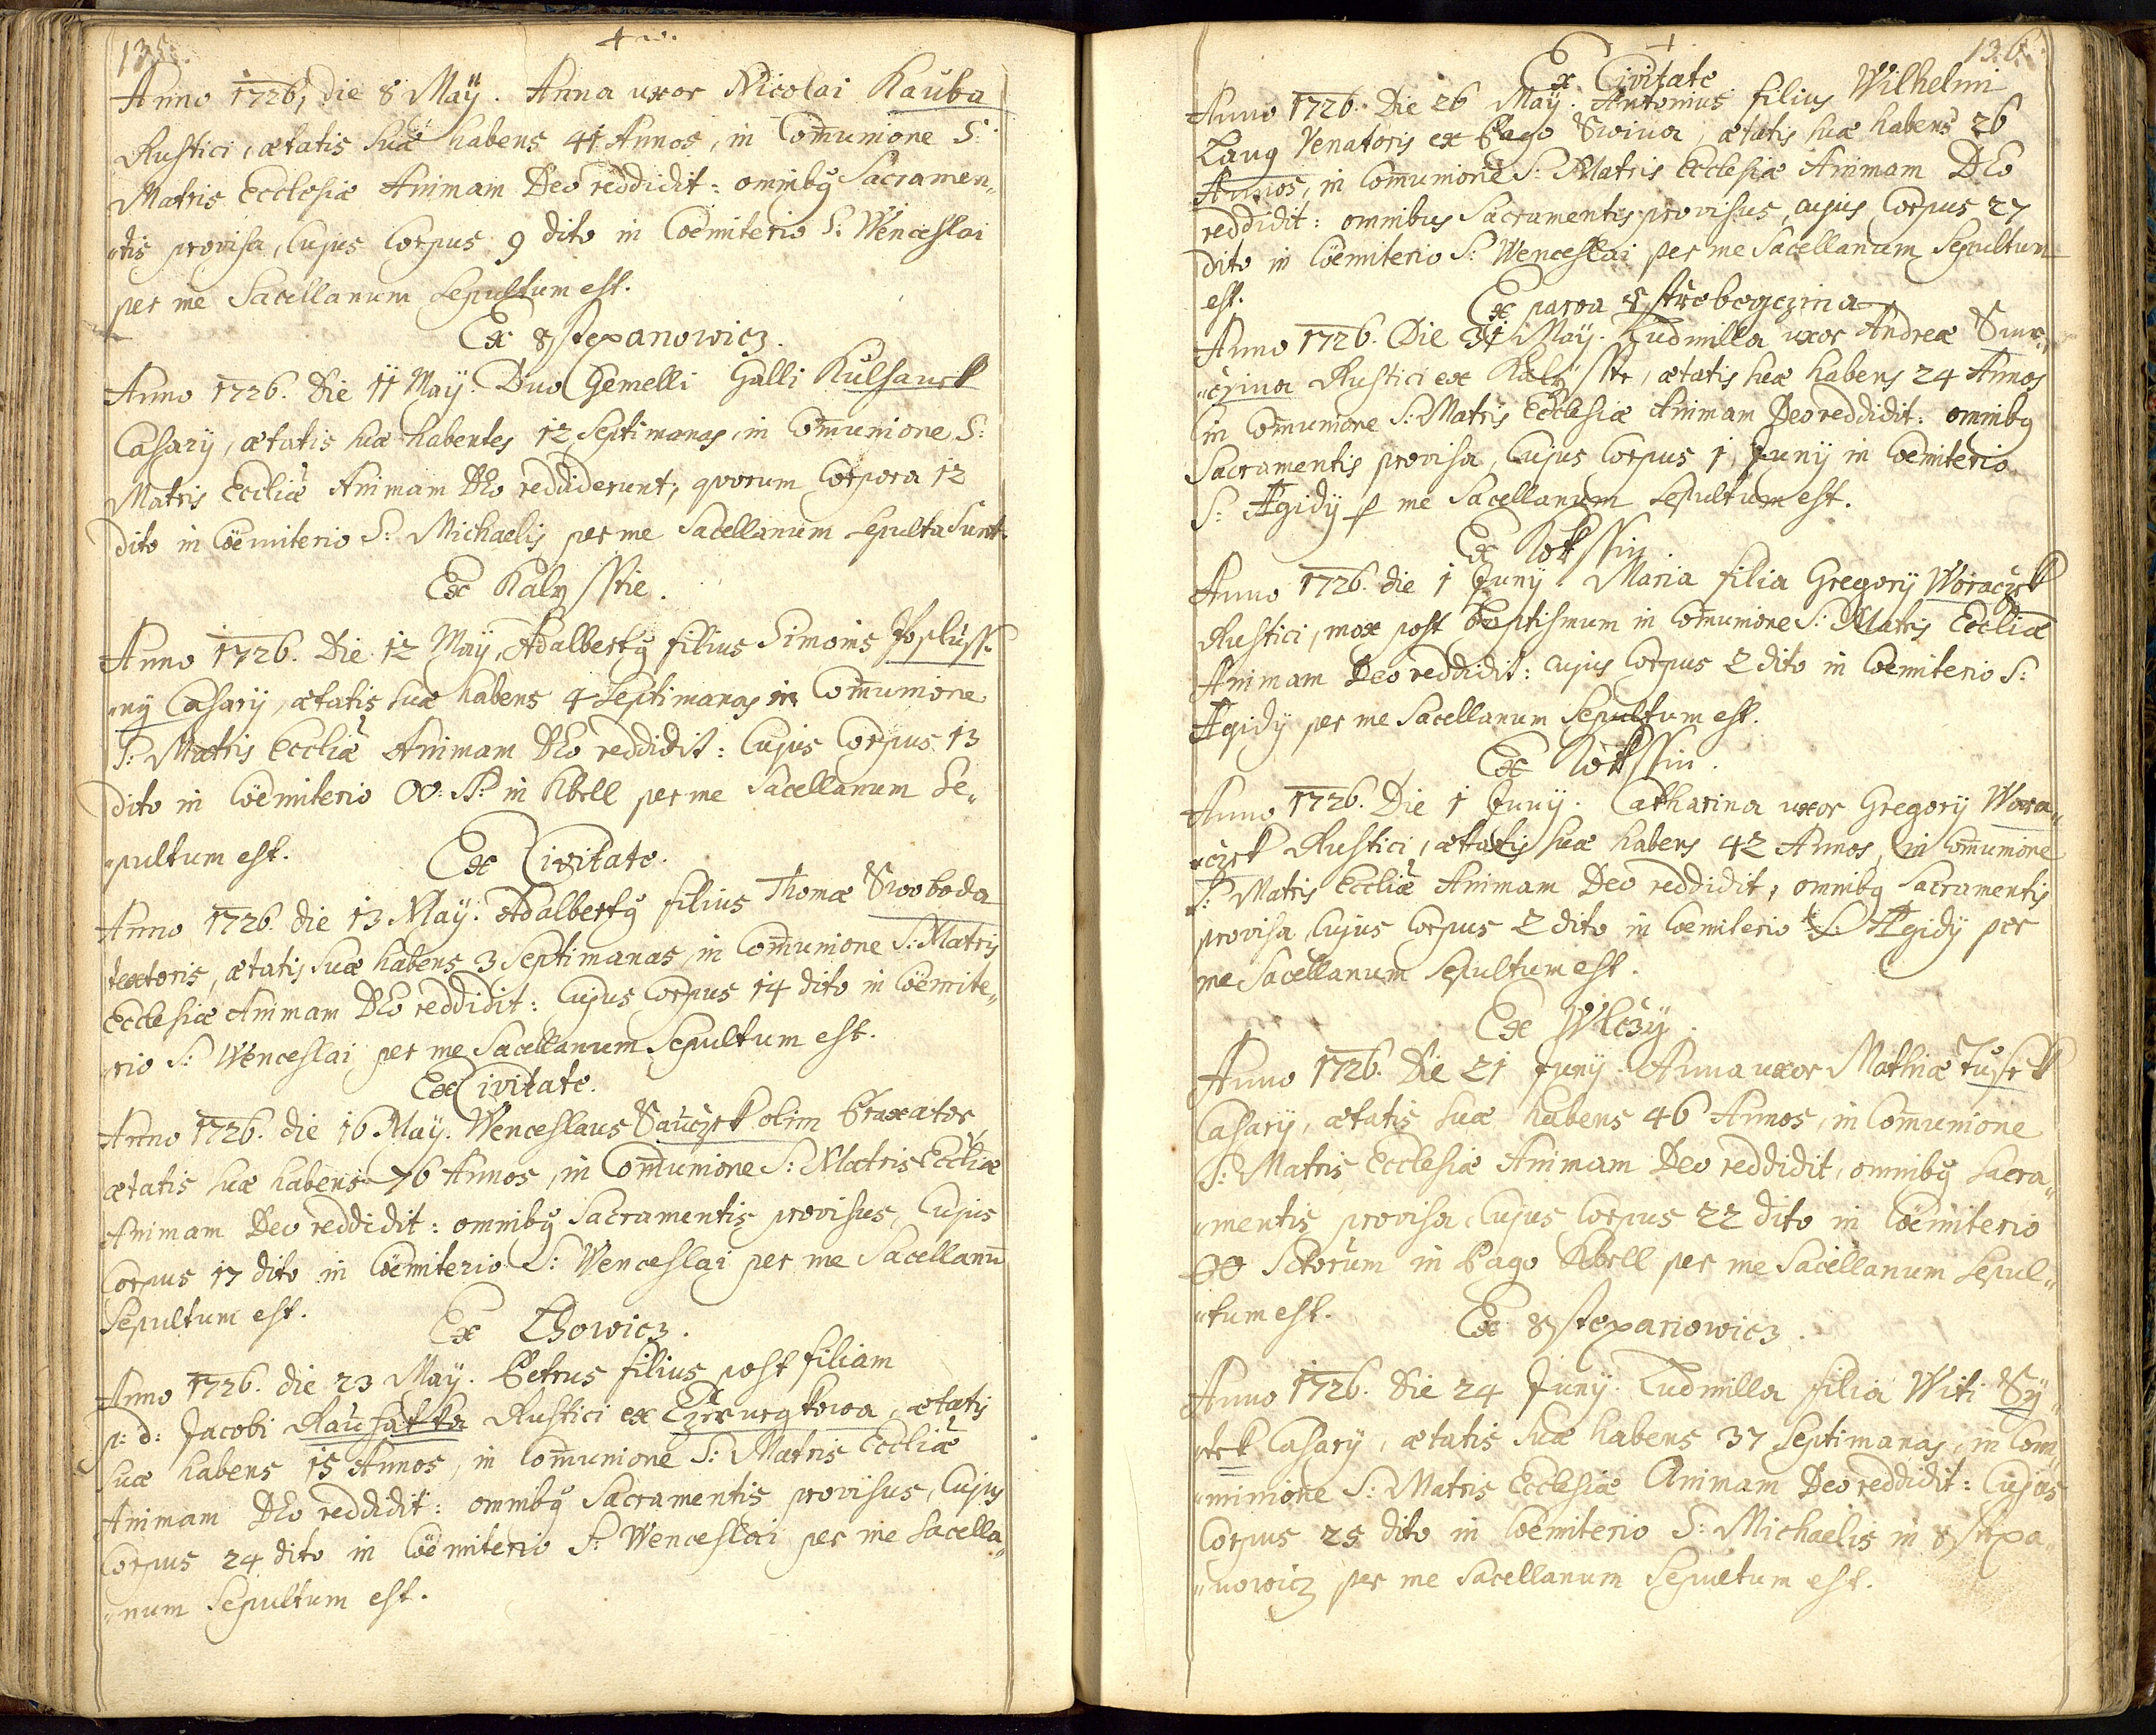 135.
Anno 1726, die 8 Maÿ. Anna uxor Nicolai Kauba
Rustici, ætatis suæ habens 41 Annos, in Com̄unione S:
Matris Ecclesiæ Animam Deo reddidit: omnibꝰ Sacramen„
„tis provisa, Cujus Corpus 9 dito in Cöemiterio S: Wenceslai
per me Sacellanum Sepultum est.
Ex Sstepanowicz.
Anno 1726. Die 11 Maÿ. Duo Gemelli Galli Kulhanek
Casarÿ, ætatis suæ habentes 12 Septimanas, in Com̄unione S:
Matris Eccliæ Animam DEo reddiderunt, quorum Corpora 12
dito in Cöemiterio S: Michaelis per me Sacellanum Sepulta Sunt.
Ex Kalysstie.
Anno 1726. Die 12 Maÿ, Adalbertꝰ filius Simonis
„nÿ Casarÿ, ætatis suæ habens 4 Septimanas in Com̄unione
S: Matris Eccliæ Animam DEo reddidit: Cujus Corpus 13
dito in Cöemiterio OO: SS: in Kbell per me Sacellanum Se„
„pultum est.
Ex Civitate.
Anno 1726. die 13 Maÿ. Adalbertꝰ filius Thomæ Swoboda
textoris, ætatis suæ habens 3 Septimanas, in Com̄unione S: Matris
Ecclesiæ Animam DEo reddidit: Cujus Corpus 14 dito in Cöemite„
„rio S: Wenceslai per me Sacellanum Sepultum est.
Ex Civitate.
Anno 1726. die 16 Maÿ. Wenceslaus Sauczek olim Braxator
ætatis suæ habens 76 Annos, in Com̄unione S: Matris Eccliæ
Animam Deo reddidit: omnibꝰ Sacramentis provisus, Cujus
Corpus 17 dito in Cöemiterio S: Wenceslai per me Sacellanū
Sepultum est.
Ex Zhowicz.
Anno 1726. die 23 Maÿ. Petrus filius post filiam
p: d: Jacobi Rustici ex ætatis
suæ habens 15 Annos, in Com̄unione S: Matris Eccliæ
Animam DEo reddidit: omnibꝰ Sacramentis provisus, Cujus
Corpus 24 dito in Cöemiterio S: Wenceslai per me Sacella„
„num Sepultum est.
136.
Ex Civitate
Anno 1726. Die 26 Maÿ. Antonius filius Wilhelmi
Lang Venatoris ex Pago Swina, ætatis suæ habens 26
Annos, in Com̄unione S: Matris Ecclesiæ Animam DEo
reddidit: omnibus Sacramentis provisus, cujus Corpus 27
dito in Cöemiterio S: Wenceslai per me Sacellanum Sepultum
est.
Ex parva Sstrobogczina
Anno 1726. Die 31 Maÿ. Ludmilla uxor Andreæ Smr„
„czina Rustici ex Kalysste, ætatis suæ habens 24 Annos
in Com̄unione S: Matris Ecclesiæ Animam Deo reddidit: omnibꝰ
Sacramentis provisa, Cujus Corpus 1 Junÿ in Coemiterio
S: Ægidÿ p me Sacellanum Sepultum est.
Ex Nokssin.
Anno 1726. die 1 Junÿ. Maria filia Gregorÿ Woraczek
Rustici, mox post baptismum in Com̄unione S: Matris Eccliæ
Animam Deo reddidit: cujus Corpus 2 dito in Coemiterio S:
Ægidÿ per me Sacellanum Sepultum est.
Ex Nokssin.
Anno 1726. Die 1 Junÿ. Catharina uxor Gregorÿ Wora„
„czek Rustici, ætatis suæ habens 42 Annos, in Com̄unione
S: Matris Eccliæ Animam Deo reddidit, omnibꝰ Sacramentis
provisa, Cujus Corpus 2 dito in Coemiterio S: Ægidÿ per
me Sacellanum Sepultum est.
Ex Wlczÿ.
Anno 1726. Die 21 Junÿ. Anna uxor Mathiæ Tusek
Casarÿ, ætatis suæ habens 46 Annos, in Com̄unione
S: Matris Ecclesiæ Animam Deo reddidit, omnibꝰ Sacra„
„mentis provisa, Cujus Corpus 22 dito in Cöemiterio
OO Sctorum in Pago Kbell per me Sacellanum Sepul„
„tum est.
Ex Sstepanowicz.
Anno 1726. Die 24 Junÿ. Ludmilla filia Witi Sÿ„
Casarÿ, ætatis suæ habens 37 Septimanas, in Com„
„munione S: Matris Ecclesiæ Animam Deo reddidit: Cujus
Corpus 25 dito in Cöemiterio S: Michaelis in Sstepa„
„nowicz per me Sacellanum Sepultum est.